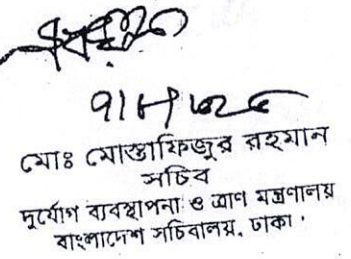 মোঃ মোস্তাফিজুর রহমান
সচিব
দুর্যোগ ব্যবস্থাপনা ও ত্রাণ মন্ত্রণালয়
বাংলাদেশ সচিবালয়, ঢাকা।